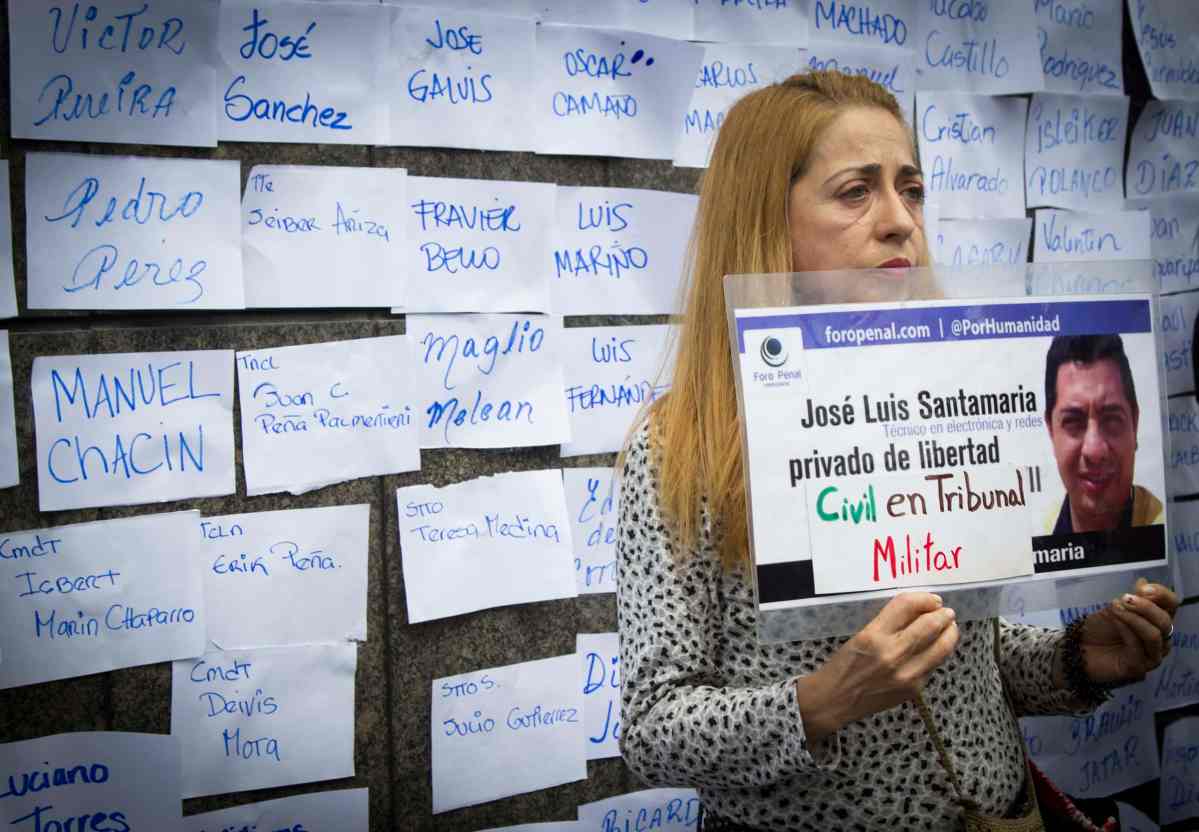 Victor
Pereira
José
Sanchez
JOSE
GALVIS
OSCAR
CAMAÑO
CARLOS
MACHADO
Jacobo
Castillo
Mario
Rodriguez
Jesus
Cristian
Alvarado
isleiker
POLANCO
JUAN
DÍAZ
Pedro
Perez
Tte
Jeiber Ariza
FRAVIER
BELLO
LUIS
MARIÑO
Valentin
MANUEL
CHACIN
Tncl
Juan C.
Peña Palmentieri
Maglio
Melean
LUIS
FERNÁNDE
foropenal.com | @PorHumanidad
Foro Penal
José Luis Santamaria
Técnico en electrónica y redes
privado de libertad
Civil en Tribunal
Militar
maria
Cmdt
Igbert
Marin Chaparro
TCLN
ERIK PEÑA.
STTO
Teresa Medina
Cmdt
Deivis
Mora
STTOS.
Julio Gutierrez
Luciano
Torres
BRAULIO
JATAR
RICARD